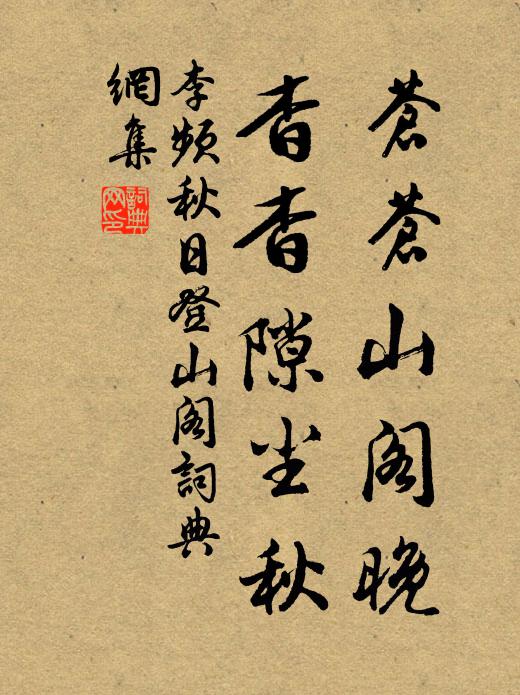 蒼蒼山閣晚
杳杳隙尘秋
李頻秋日登山閣詞典
網集
詞典
网印